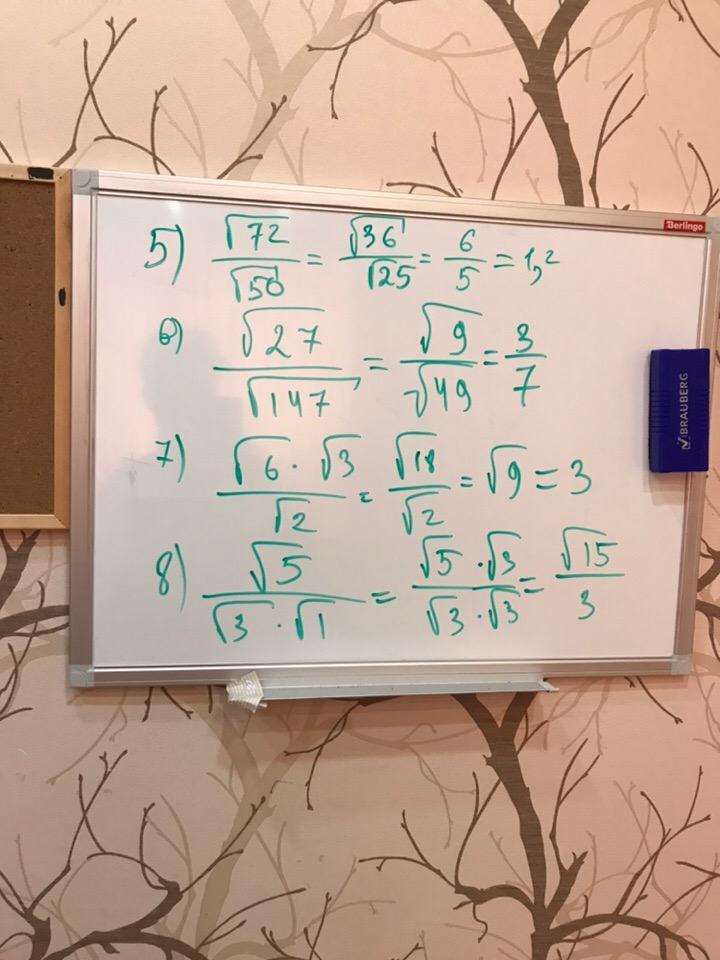 Berlingo
5) √72/√50 = √36/√25 = 6/5 = 1,2
6) √27/√147 = √9/√49 = 3/7
7) √6 · √3/√2 = √18/√2 = √9 = 3
8) √5/√3 · √1 = √5 · √3/√3 · √3 = √15/3
BRAUBERG